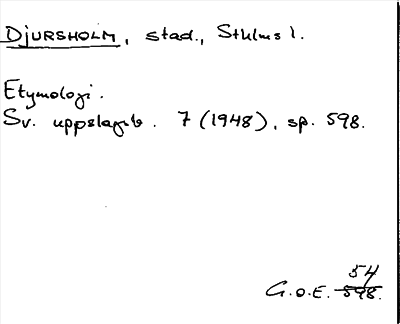 DJURSHOLM, stad., Sthlms l.
Etymologi.
Sv. uppslagsb. 7 (1948), sp. 598.
54
G.O.E. 598.